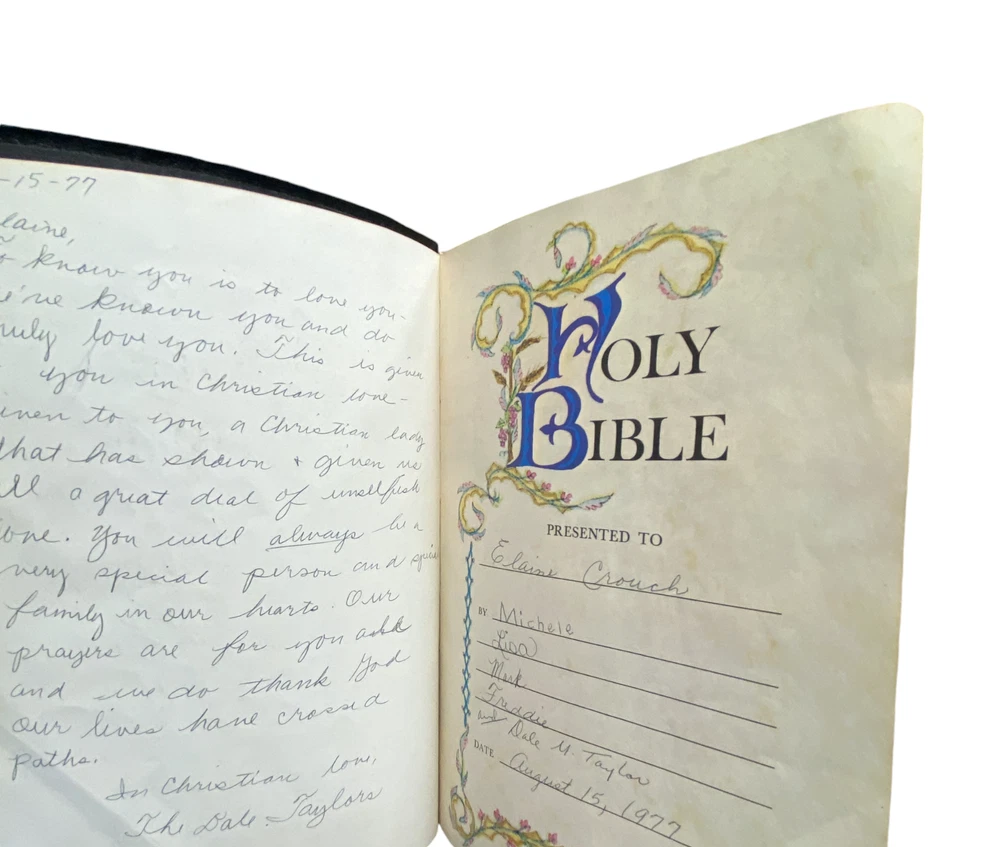 -15-77
laine,
o know you is to love you-
e've known you and do
ruly love you. This is given
you in Christian love-
iven to you, a Christian lady
that has shown + given us
all a great deal of unselfish
love. You will always be a
very special person and special
family in our hearts. Our
prayers are for you all
and we do thank God
our lives have crossed
paths.
In Christian love,
The Dale Taylors
HOLY
BIBLE
PRESENTED TO
Elaine Crouch
BY Michele
Lisa
Mark
Freddie
and Dale M. Taylor
DATE August 15, 1977